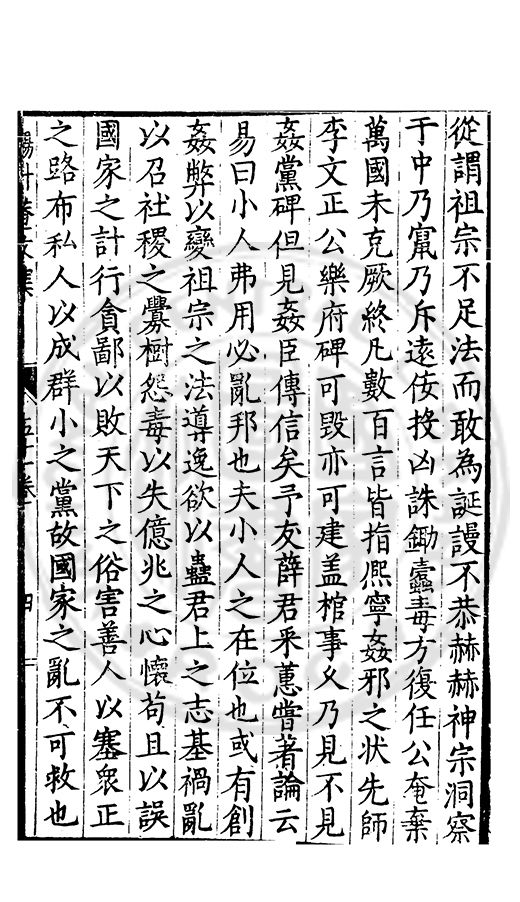 從謂祖宗不足法而敢為誕謾不恭赫赫神宗洞察
于中乃竄乃斥遠佞投凶誅鋤蠹毒方復任公奄棄
萬國未克厥終凡數百言皆指熈寧姦邪之狀先師
李文正公樂府碑可毀亦可建盖棺事乆乃見不見
姦黨碑但見姦臣傳信矣予友薛君采蕙嘗著論云
易曰小人弗用必亂邦也夫小人之在位也或有創
姦弊以變祖宗之法導逸欲以蠱君上之志基禍亂
以召社稷之釁樹怨毒以失億兆之心懷苟且以誤
國家之計行貪鄙以敗天下之俗害善人以塞衆正
之路布私人以成群小之黨故國家之亂不可救也
卷
四